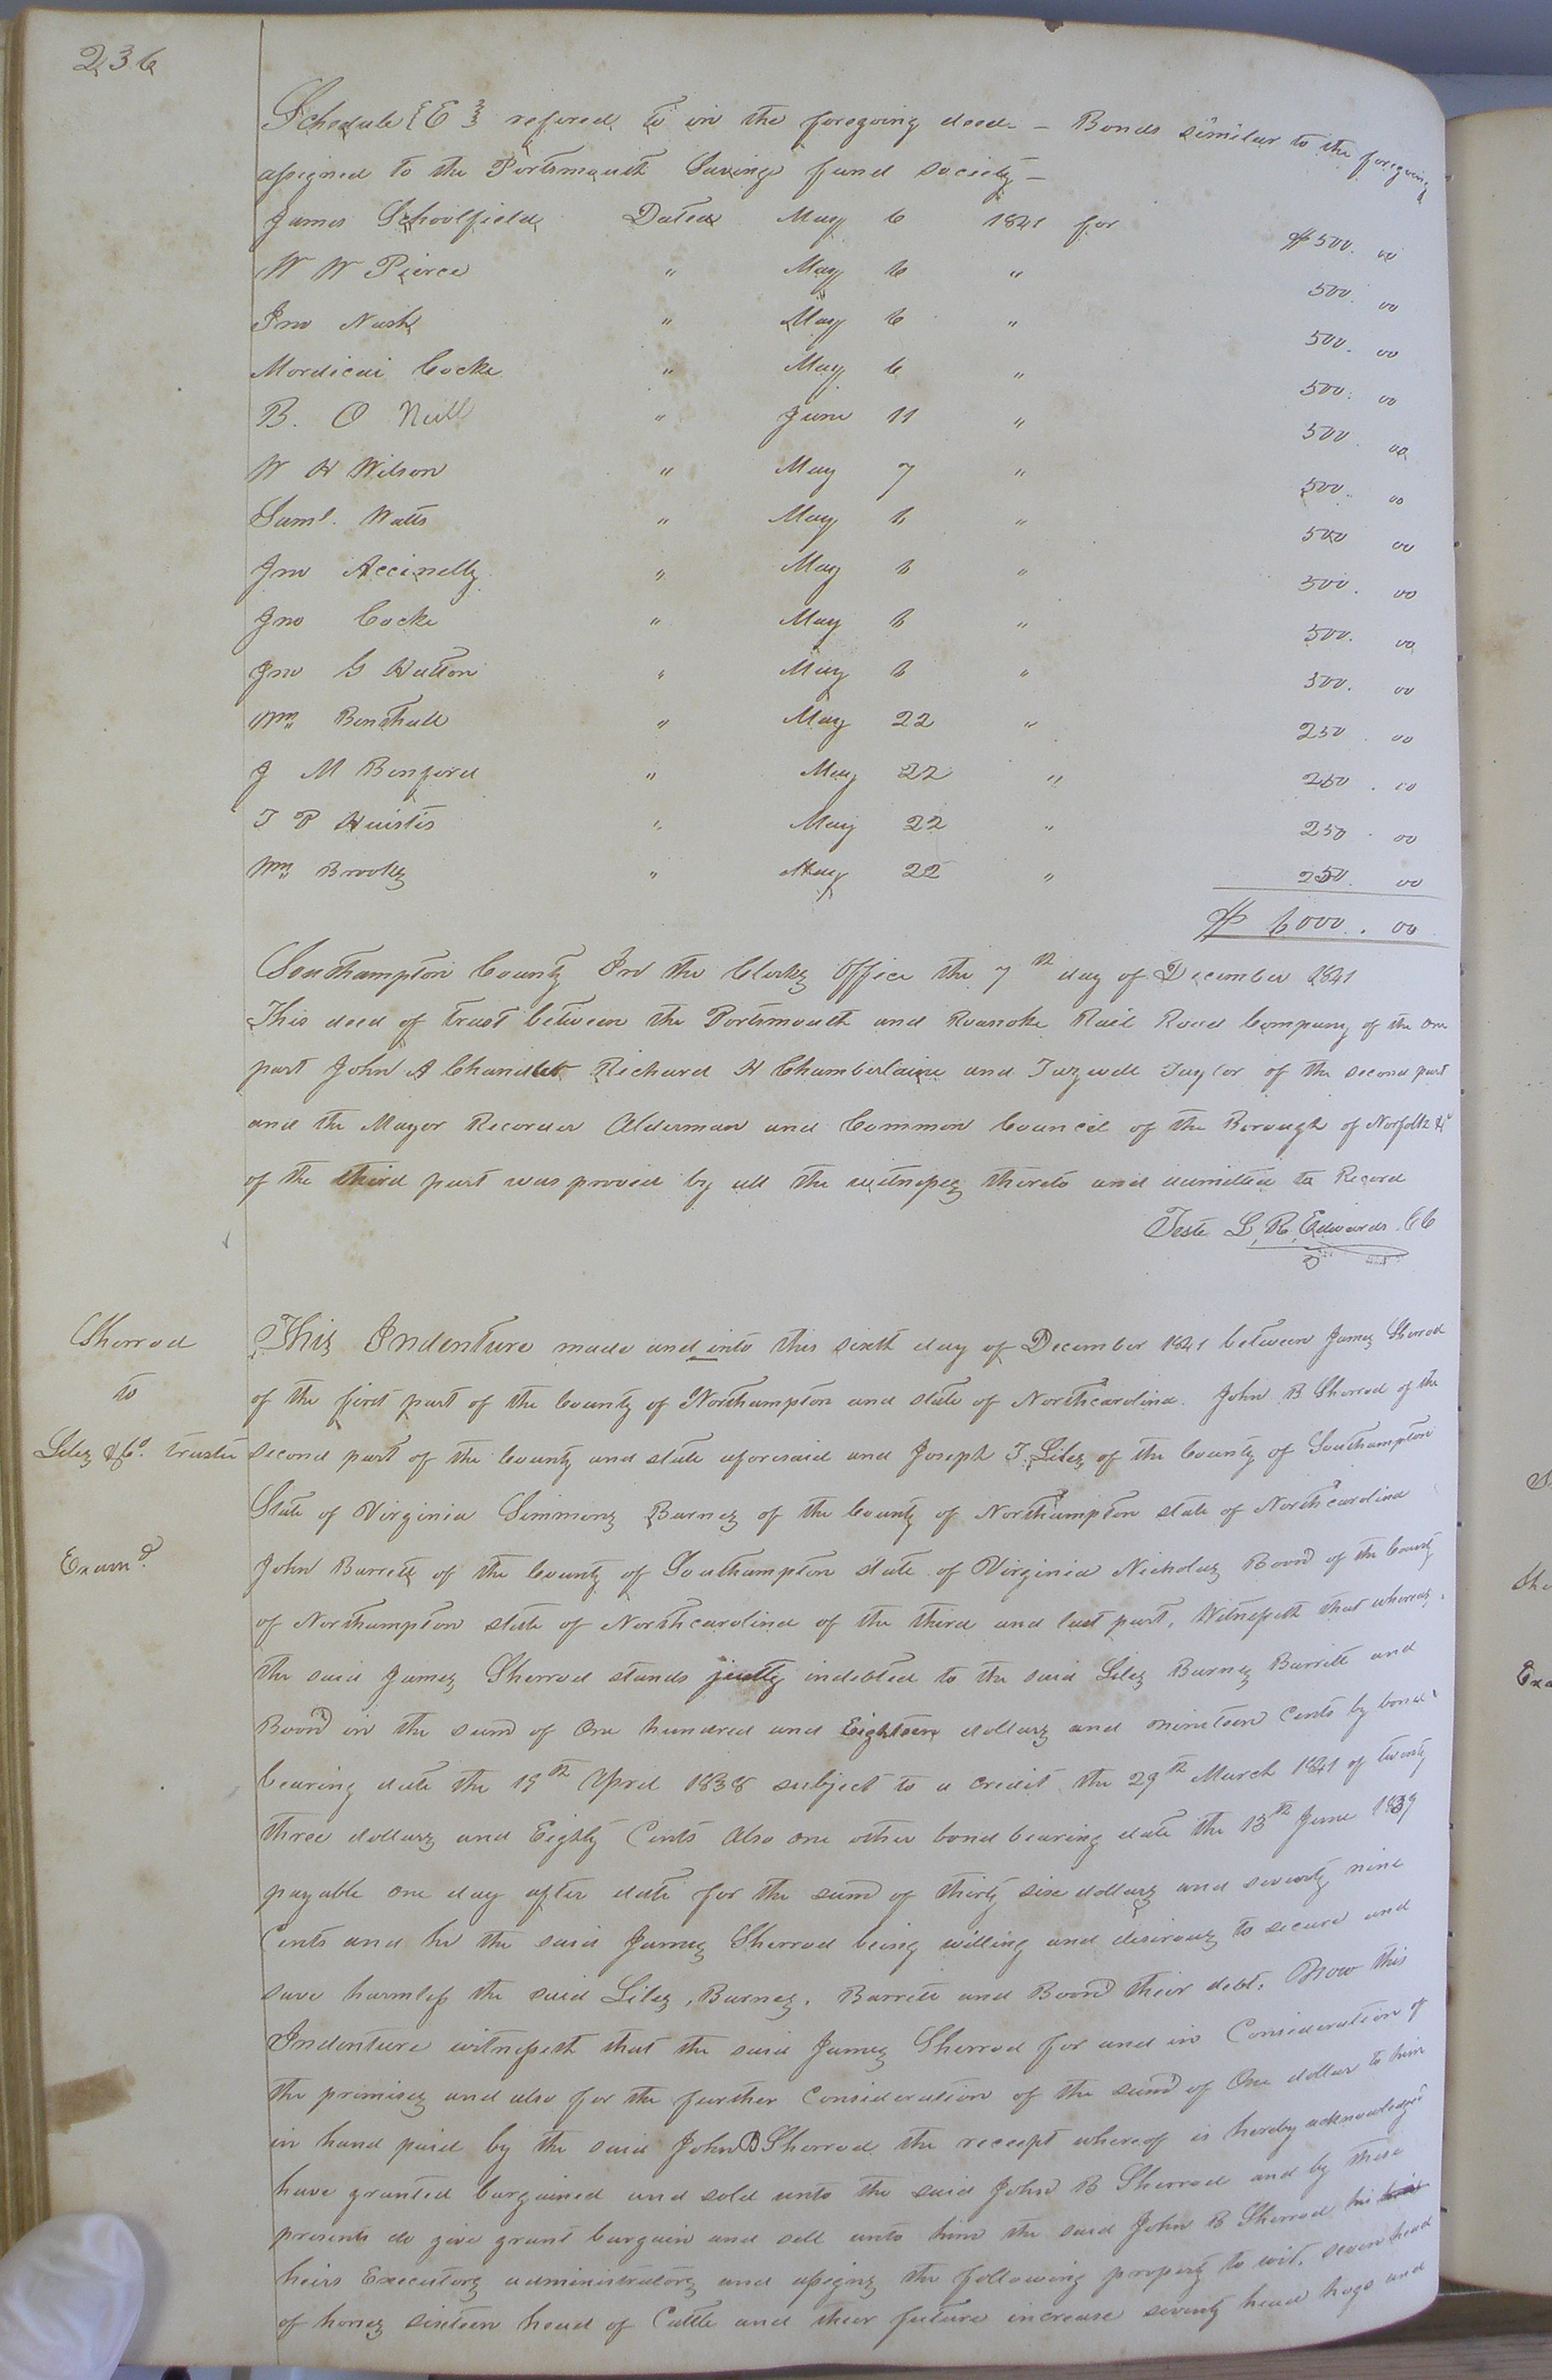 236
Schedule {E} refered to in the foregoing deed - Bonds similar to the foregoing
assigned to the Portsmouth Savings fund society -
James Schoolfield Dated May 6 1841 for $500. 00
W W Pierce " May 6 " 500. 00
Jno Nash " May 6 " 500. 00
Mordicai Cocke " May 6 " 500. 00
B. O Neill " June 11 " 500. 00
W H Wilson " May 7 " 500. 00
Saml. Watts " May 6 " 500 00
Jno Accinelly " May 6 " 500. 00
Jno Cocke " May 6 " 500. 00
Jno G Hatton " May 6 " 500. 00
Wm Benthall " May 22 " 250. 00
J M Binford " May 22 " 250. 00
T P Huistis " May 22 " 250. 00
Wm Brooks " May 22 " 250. 00
$ 6000. 00
Southampton County In the Clerks Office the 7th day of December 1841
This deed of trust between the Portsmouth and Roanoke Rail Road Company of the one
part John A Chandler Richard H Chamberlaine and Tazwell Taylor of the second part
and the Mayor Recorder Alderman and Common Council of the Borough of Norfolk &c
of the third part was proved by all the witnesses thereto and admitted to Record
Teste L. R. Edwards. CC
Sherrod
to
Liles &Co. trustee
Examd.
This Indenture made and into this sixth day of December 1841 between James Sherrod
of the first part of the County of Northampton and state of Northcarolina. John B Sherrod of the
second part of the County and state aforesaid and Joseph T. Liles of the County of Southampton
State of Virginia Simmons Barnes of the County of Northampton state of Northcarolina
John Barrett of the County of Southampton state of Virginia Nicholas Boon of the County
of Northampton state of Northcarolina of the third and last part. Witnesseth that whereas.
the said James Sherrod stands justly indebted to the said Liles Barnes Barrett and
Boon in the sum of One hundred and Eighteen dollars and nineteen Cents by bond
bearing date the 19th April 1838 subject to a credit the 29th March 1841 of twenty
three dollars and Eighty Cents Also one other bond bearing date the 13th June 1839
payable one day after date for the sum of thirty six dollars and seventy nine
Cents and he the said James Sherrod being willing and desirous to secure and
save harmless the said Liles, Barnes, Barrett and Boon their debt. Now this
Indenture witnesseth that the said James Sherrod for and in Consideration of
the premises and also for the further Consideration of the sum of One dollar to him
in hand paid by the said John B Sherrod the receept whereof is hereby acknowledged
have granted bargained and sold unto the said John B Sherrod and by these
presents do give grant bargain and sell unto him the said John B Sherrod his
heirs Executors administrators and assigns the following property to wit. seven head
of horses sixteen head of Cattle and their future increase seventy head hogs and